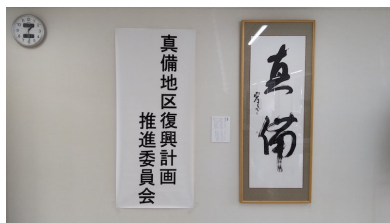 真備地区復興計画
推進委員会
真備